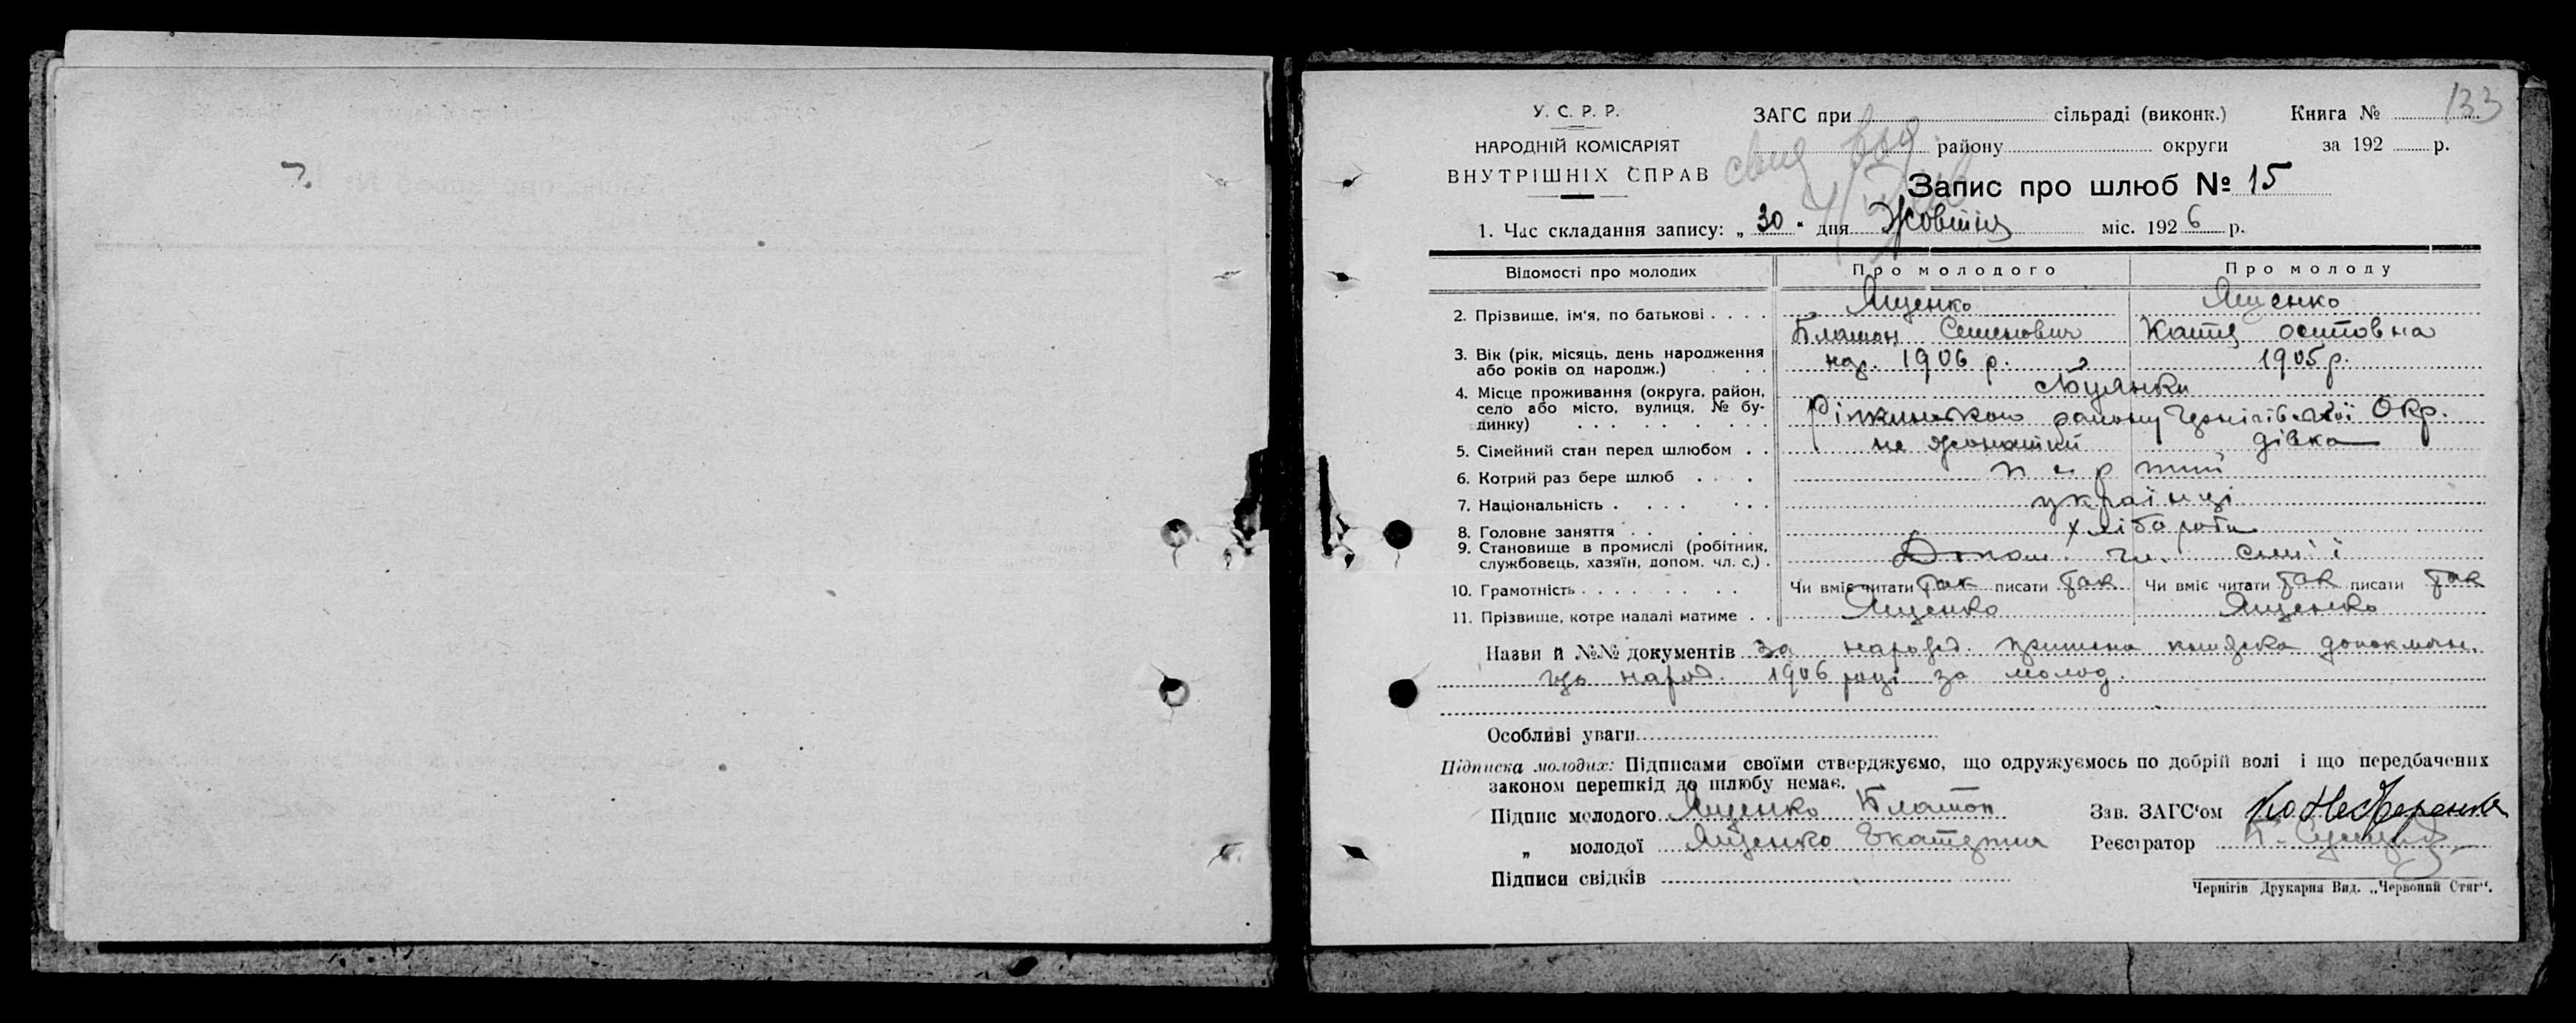 133
У. С. Р. Р.
НАРОДНІЙ КОМІСАРІЯТ
ВНУТРІШНІХ СПРАВ
ЗАГС при сільраді (виконк.) Книга №
району округи за 192 р.
Запис про шлюб № 15
1. Час складання запису: „ 30 “ дня Жовтня міс. 1926 р.
Відомості про молодих Про молодого Про молоду
2. Прізвище, ім'я, по батькові . . . . Ященко Ященко
Платон Семенович Катя оситовна
3. Вік (рік, місяць, день народження
або років од народж.) . . . нар. 1906 р. 1905 р.
4. Місце проживання (округа, район,
село або місто, вулиця, № бу-
динку) району Чернігівської Окр.
5. Сімейний стан перед шлюбом . . не жонатий дівка
6. Котрий раз бере шлюб . . . перший
7. Національність . . . . українці
8. Головне заняття . . хлібороби
9. Становище в промислі (робітник,
службовець, хазяїн, допом. чл. с.) . Допом. чл. сем'ї
10. Грамотність . . . Чи вміє читати так писати так Чи вміє читати так писати так
11. Прізвище, котре надалі матиме . . Ященко Ященко
Назви й №№ документів за народ.
народ. 1906 році за молод.
Особливі уваги
Підписка молодих: Підписами своїми стверджуємо, що одружуємось по добрій волі і що передбачених
законом перешкід до шлюбу немає.
Підпис молодого Ященко Платон Зав. ЗАГС'ом
„ молодої Ященко Реєстратор
Підписи свідків
Чернігів Друкарня Вид. „Червоний Стяг“.